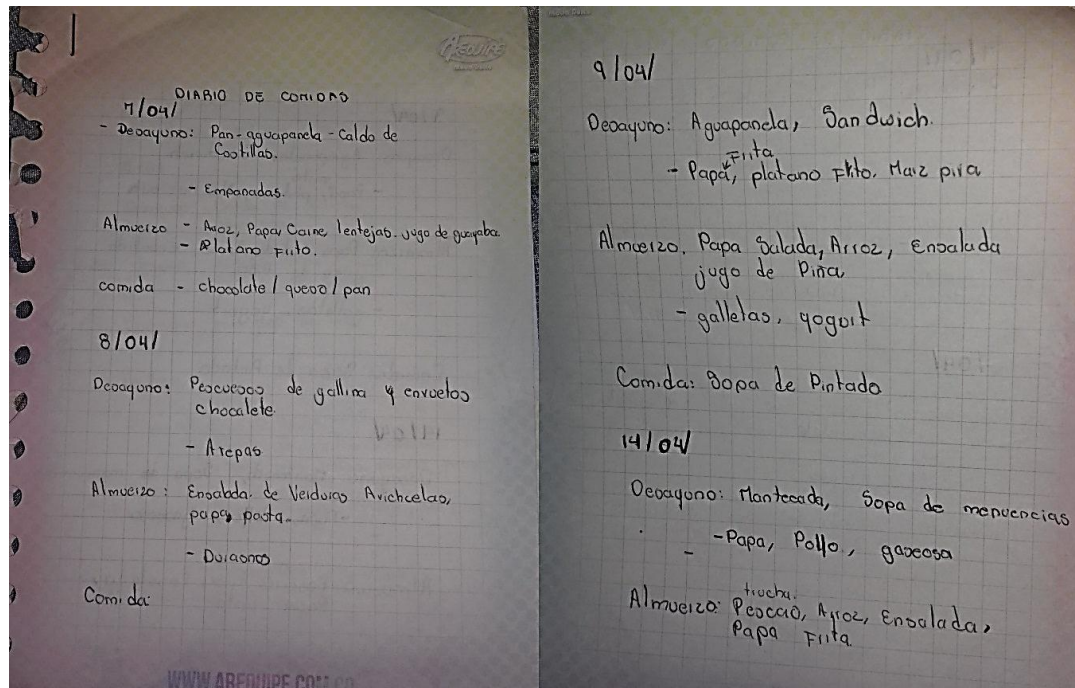 1
AREQUIPE
DIARIO DE COMIDAS
7/04/
- Desayuno: Pan-aguapanela-Caldo de
Costillas.
- Empanadas.
Almuerzo - Arroz, Papa, Carne, lentejas. jugo de guayaba
- Platano Frito.
comida - chocolate / queso / pan
8/04/
Desayuno: Pescuesos de gallina y envueltos
chocalete.
- Arepas
Almuerzo: Ensalada de Verduras Avichuelas,
papa, pasta.
- Duraznos
Comida:
WWW.AREQUIPE.COM.CO
9/04/
Desayuno: Aguapanela, Sandwich.
- Papa Frita, platano Frito. Maiz pira
Almuerzo. Papa Salada, Arroz, Ensalada
jugo de Piña
- galletas, yogurt
Comida: Sopa de Pintado
14/04/
Desayuno: Mantecada, Sopa de menuencias
- Papa, Pollo, gaseosa
Almuerzo: trucha.
Pescao, Arroz, Ensalada,
Papa Frita